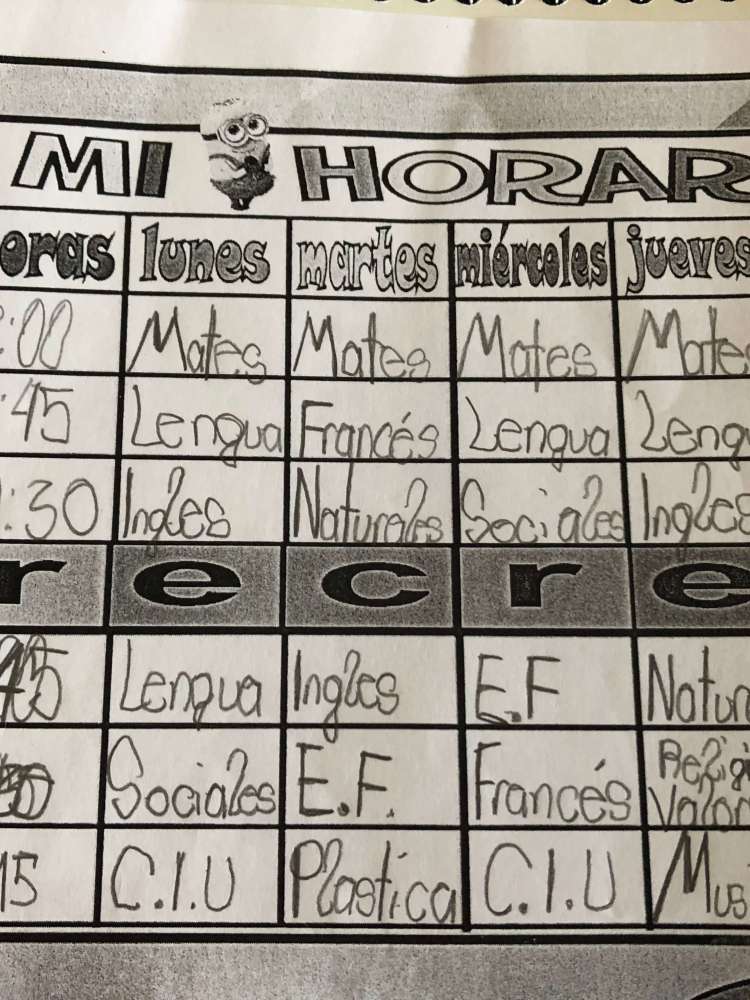 MI HORAR
oras lunes martes miércoles jueves
:00 Mates Mates Mates Mates
:45 Lengua Francés Lengua Lengu
:30 Ingles Naturales Sociales Ingles
r e c r e
45 Lengua Ingles E.F Natur
Sociales E.F. Francés Religi
Valor
15 C.I.U Plastica C.I.U Mus